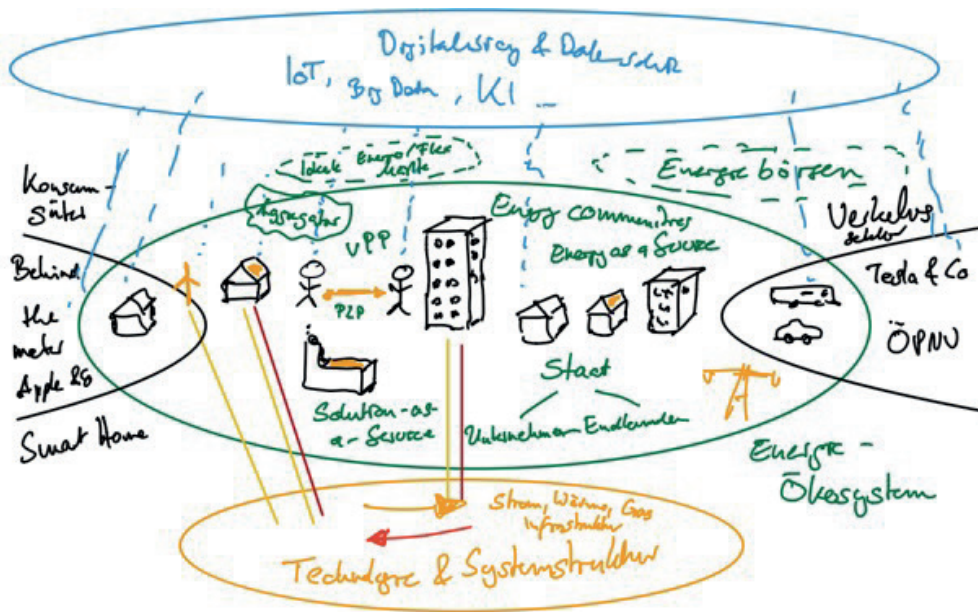 Digitalisierung & Datenschutz
IoT, Big Data, KI
lokale Energie/Flex
Märkte
Energie börsen
Konsum-
güter
Aggregator
VPP
Energy communities
Energy as a Service
Verkehrs
sektor
Behind
the
meter
Tesla & Co
P2P
ÖPNV
Smart Home
Solution-as-
a-Service
Staat
Unternehmen Endkunden
Energie-
Ökosystem
Strom, Wärme, Gas
Infrastruktur
Technologie & Systemstruktur